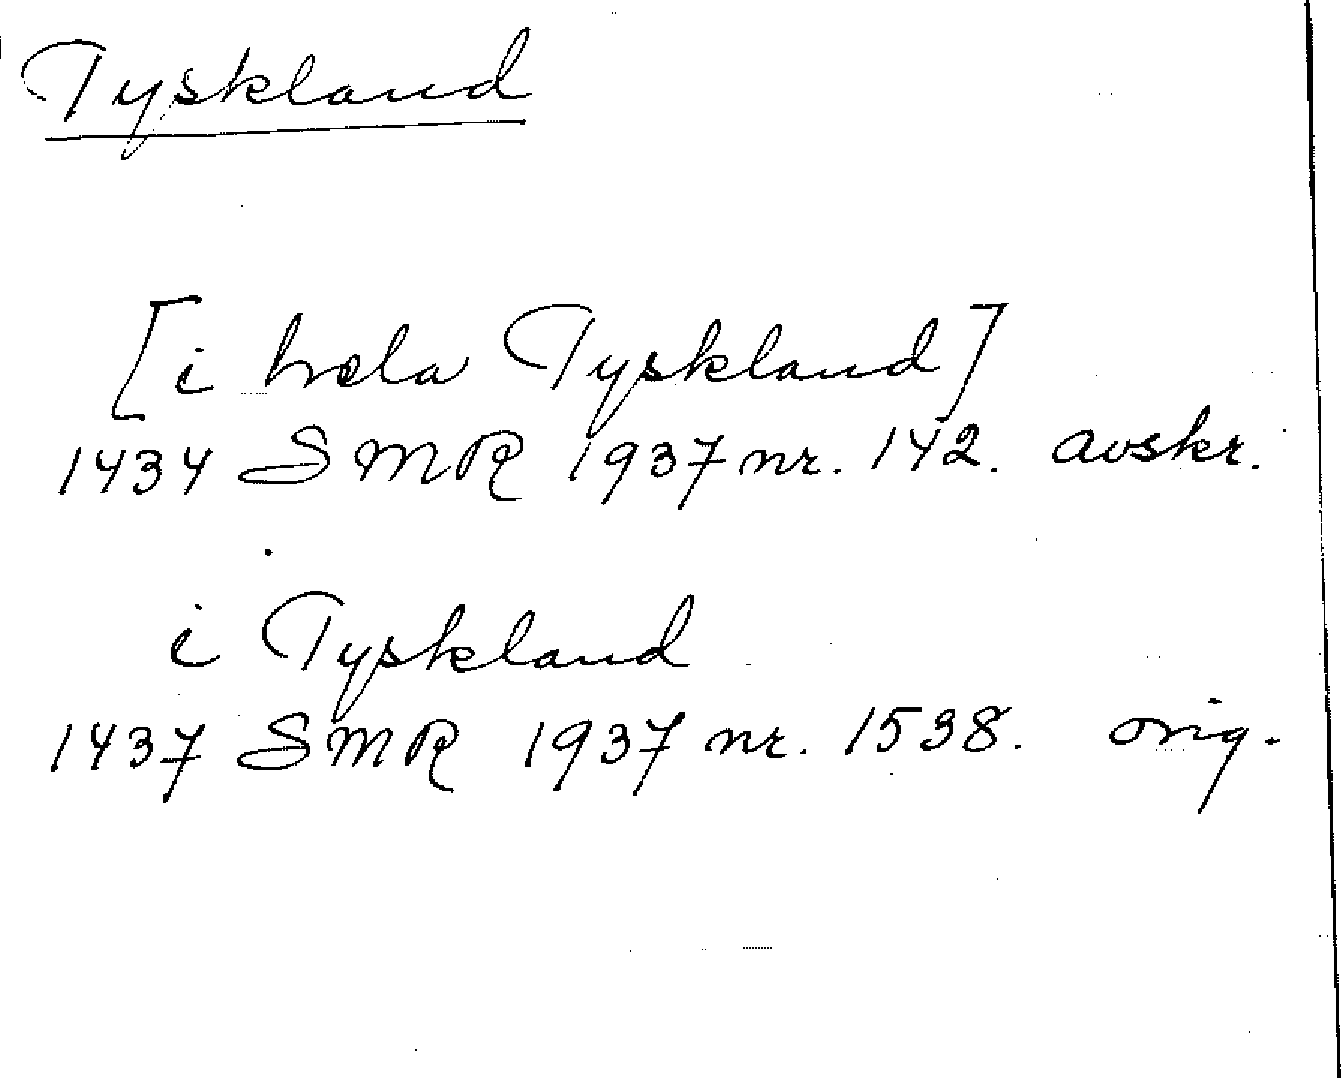 Tyskland
[i hela Tyskland]
1434 SMR 1937 nr. 142. avskr.
i Tyskland
1437 SMR 1937 nr. 1538. orig.